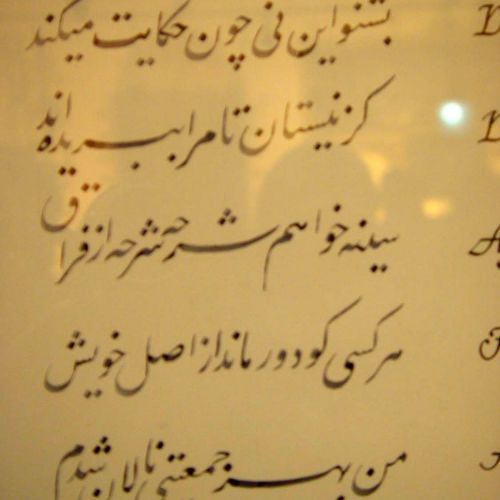 بشنو این نی چون حکایت میکند
کز نیستان تا مرا ببریده اند
سینه خواهم شرحه شرحه از فراق
هر کسی کو دور ماند از اصل خویش
من بهر جمعیتی نالان شدم